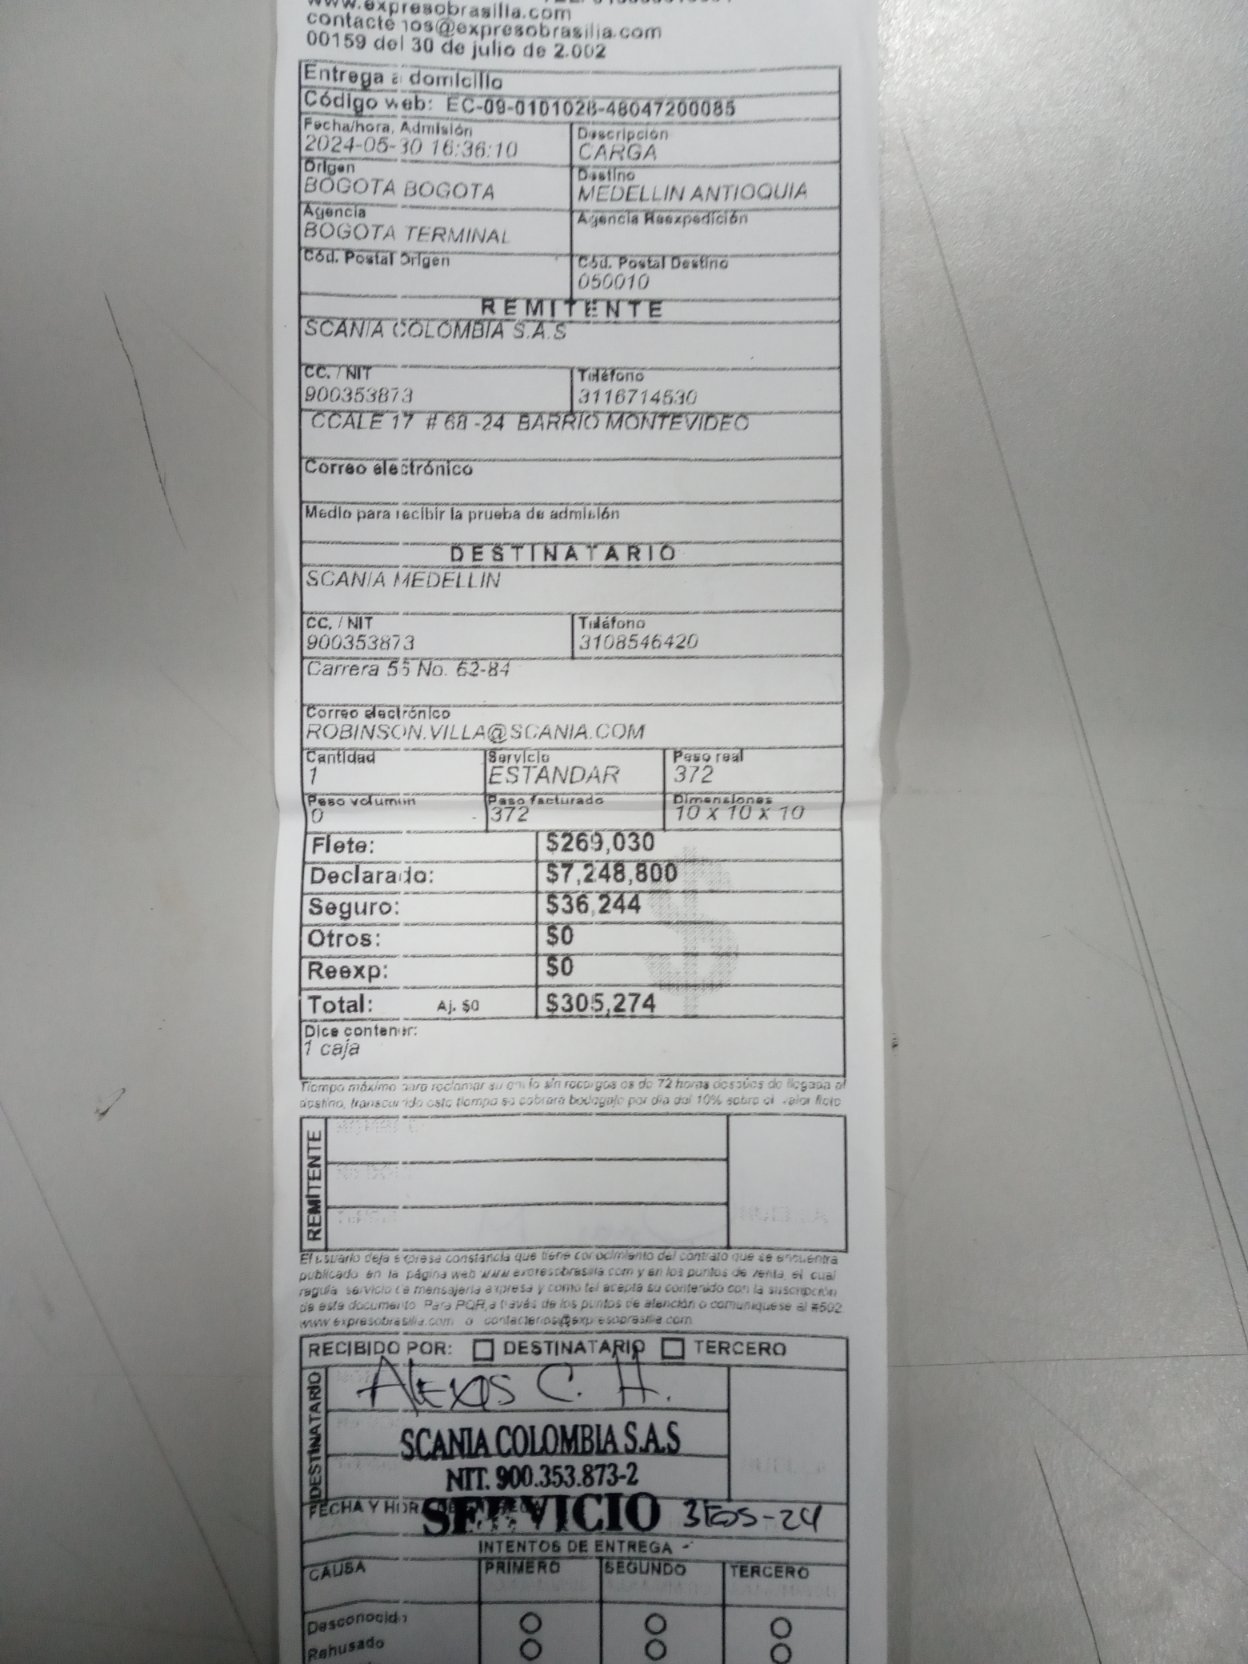 www.expresobrasilia.com
contactenos@expresobrasilia.com
00159 del 30 de julio de 2.002
Entrega a domicilio
Código web: EC-09-0101028-48047200085
Fecha/hora, Admisión Descripción
2024-05-30 16:36:10 CARGA
Origen Destino
BOGOTA BOGOTA MEDELLIN ANTIOQUIA
Agencia Agencia Reexpedición
BOGOTA TERMINAL
Cód. Postal Origen Cód. Postal Destino
050010
REMITENTE
SCANIA COLOMBIA S.A.S
CC. / NIT Teléfono
900353873 3116714530
CCALE 17 # 68 -24 BARRIO MONTEVIDEO
Correo electrónico
Medio para recibir la prueba de admisión
DESTINATARIO
SCANIA MEDELLIN
CC. / NIT Teléfono
900353873 3108546420
Carrera 55 No. 62-84
Correo electrónico
ROBINSON.VILLA@SCANIA.COM
Cantidad Servicio Peso real
1 ESTANDAR 372
Peso volumen Peso facturado Dimensiones
0 372 10 x 10 x 10
Flete: $269,030
Declarado: $7,248,800
Seguro: $36,244
Otros: $0
Reexp: $0
Total: Aj. $0 $305,274
Dice contener:
1 caja
Tiempo máximo para reclamar su envío sin recargos es de 72 horas después de llegada al
destino, transcurrido este tiempo se cobrará bodegaje por día del 10% sobre el valor flete
REMITENTE
El usuario deja expresa constancia que tiene conocimiento del contrato que se encuentra
publicado en la página web www.expresobrasilia.com y en los puntos de venta, el cual
regula servicio de mensajería expresa y como tal acepta su contenido con la suscripción
de este documento. Para PQR, a través de los puntos de atención o comuníquese al #502
www.expresobrasilia.com o contactenos@expresobrasilia.com
RECIBIDO POR: DESTINATARIO TERCERO
DESTINATARIO
Alexis C. H.
SCANIA COLOMBIA S.A.S
NIT. 900.353.873-2
FECHA Y HORA
SERVICIO
INTENTOS DE ENTREGA
CAUSA PRIMERO SEGUNDO TERCERO
Desconocido
Rehusado